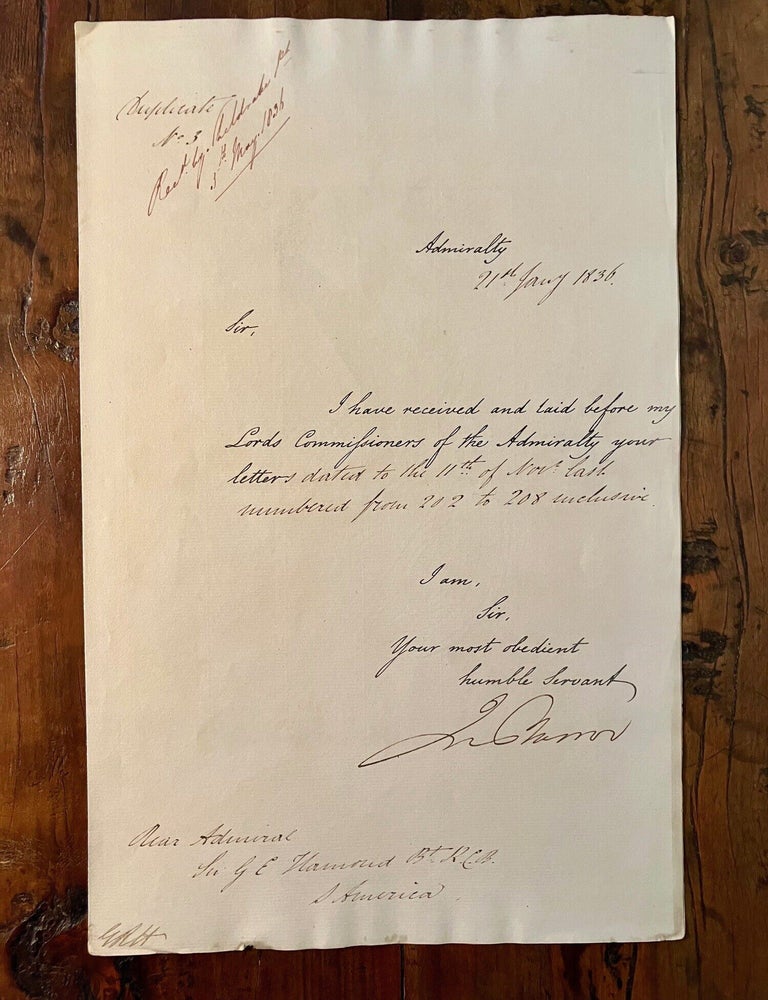 Duplicate
No. 3
Recd. by Sheldrake Pt
5th May. 1836
Admiralty
21st Jany 1836.
Sir,
I have received and laid before my
Lords Commifsioners of the Admiralty your
letters dated to the 11th of Novr. last
numbered from 202 to 208 inclusive.
I am,
Sir,
Your most obedient
humble Servant
Jn Barrow
Rear Admiral
Sir G E Hamond Bt. K.C.B.
S America